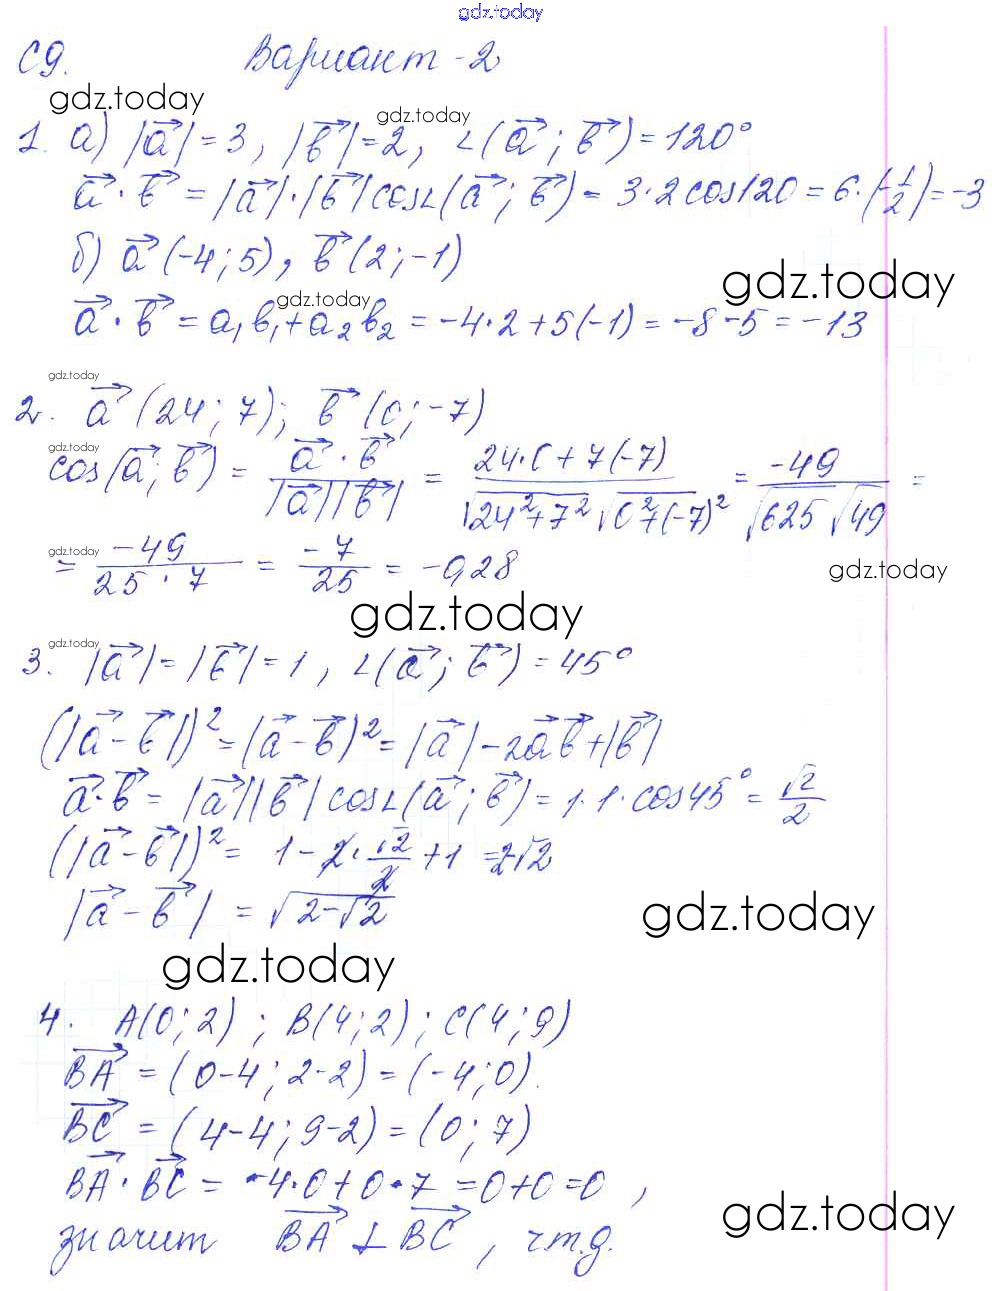 gdz.today
С9. Вариант-2
gdz.today
gdz.today
1. а) |a⃗| = 3, |b⃗| = 2, ∠(a⃗; b⃗) = 120°
a⃗ · b⃗ = |a⃗|·|b⃗| cos∠(a⃗; b⃗) = 3·2 cos120 = 6·(-1/2) = -3
б) a⃗ (-4; 5), b⃗ (2; -1)
gdz.today
gdz.today
a⃗ · b⃗ = a₁b₁ + a₂b₂ = -4·2 + 5(-1) = -8-5 = -13
gdz.today
2. a⃗ (24; 7); b⃗ (0; -7)
gdz.today
cos(a⃗; b⃗) = (a⃗ · b⃗)/(|a⃗||b⃗|) = (24·0 + 7(-7))/(√(24²+7²) √(0²+(-7)²)) = -49/(√625 √49) =
gdz.today
= -49/(25·7) = -7/25 = -0,28
gdz.today
gdz.today
gdz.today
3. |a⃗| = |b⃗| = 1, ∠(a⃗; b⃗) = 45°
(|a⃗ - b⃗|)² = (a⃗ - b⃗)² = |a⃗| - 2a⃗b⃗ + |b⃗|
a⃗·b⃗ = |a⃗||b⃗| cos∠(a⃗; b⃗) = 1·1·cos45° = √2/2
(|a⃗ - b⃗|)² = 1 - 2·√2/2 + 1 = 2-√2
|a⃗ - b⃗| = √(2-√2)
gdz.today
gdz.today
4. A(0; 2); B(4; 2); C(4; 9)
BA⃗ = (0-4; 2-2) = (-4; 0).
BC⃗ = (4-4; 9-2) = (0; 7)
BA⃗ · BC⃗ = -4·0 + 0·7 = 0+0 = 0,
gdz.today
значит BA⃗ ⊥ BC⃗, чт.д.